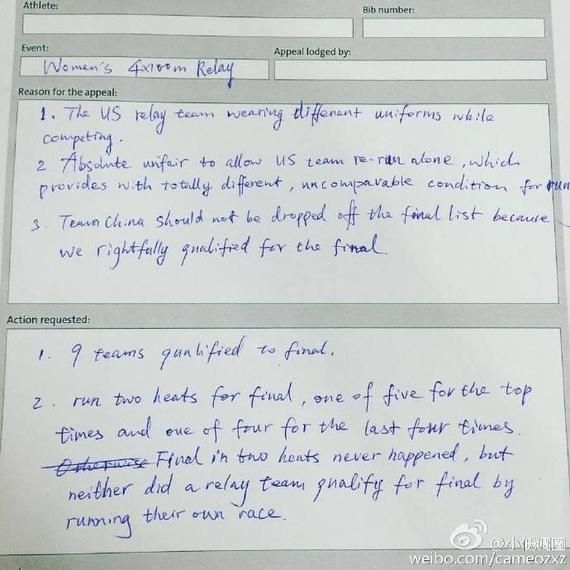 Athlete:
Bib number:
Event:
Appeal lodged by:
Women's 4x100m Relay
Reason for the appeal:
1. The US relay team wearing different uniforms while
competing.
2. Absolute unfair to allow US team re-run alone, which
provides with totally different, uncomparable condition for run
3. Team China should not be dropped off the final list because
we rightfully qualified for the final.
Action requested:
1. 9 teams qualified to final.
2. run two heats for final, one of five for the top
times and one of four for the last four times.
Otherwise Final in two heats never happened, but
neither did a relay team qualify for final by
running their own race.
weibo.com/cameozxz